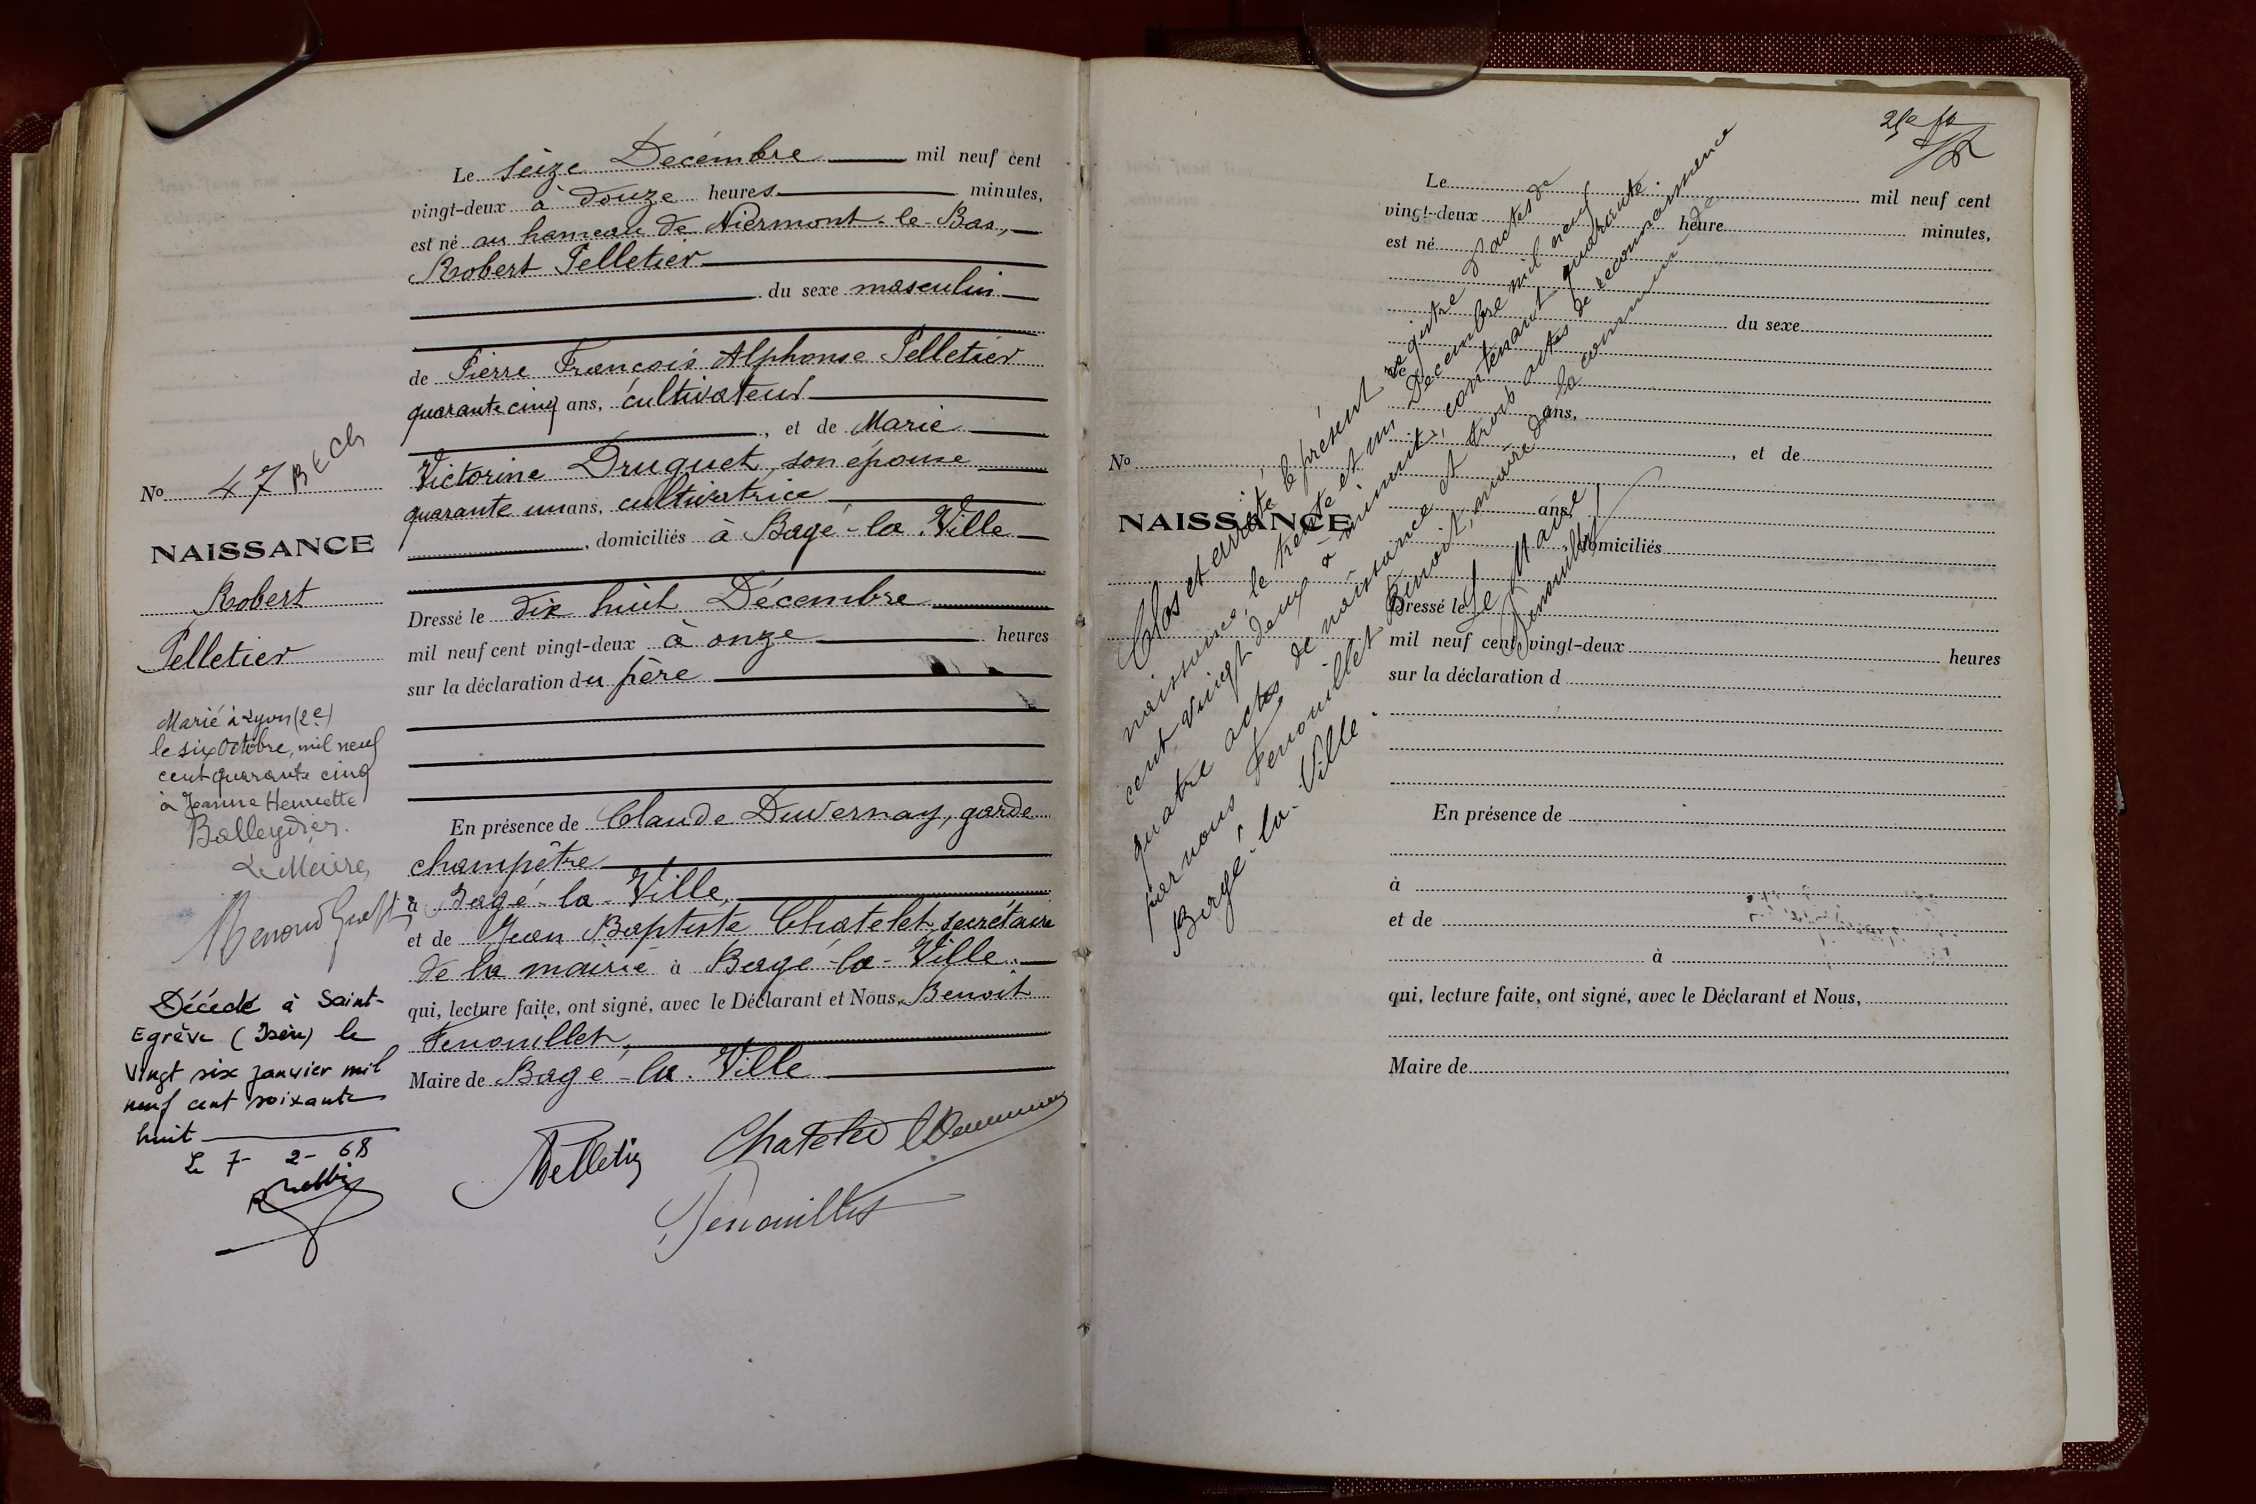 Le seize Décembre mil neuf cent
vingt-deux à douze heures minutes,
est né au hameau de Niermont-le-Bas,
Robert Pelletier
du sexe masculin
de Pierre François Alphonse Pelletier
quarante cinq ans, cultivateur
, et de Marie
Victorine Druguet, son épouse
quarante un ans, cultivatrice
, domiciliés à Bagé-la-Ville
Dressé le dix huit Décembre
mil neuf cent vingt-deux à onze heures
sur la déclaration du père
En présence de Claude Duvernay, garde
champêtre
à Bagé-la-Ville,
et de Jean Baptiste Chatelet, secrétaire
de la mairie à Bagé-la-Ville.
qui, lecture faite, ont signé, avec le Déclarant et Nous, Benoit
Fenouillet,
Maire de Bagé-la-Ville
Pelletier Chatelet Duvernay
Fenouillet
No 47
NAISSANCE
Robert
Pelletier
Marié à Lyon (2e)
le six Octobre, mil neuf
cent quarante cinq
à Jeanne Henriette
Balleydier.
Le Maire,
Décédé à Saint-
Egrève (Isère) le
Vingt six janvier mil
neuf cent soixante
huit
Le 7-2-68
Le mil neuf cent
vingt-deux heure minutes,
est né
du sexe
de
ans,
, et de
ans,
, domiciliés
Dressé le
mil neuf cent vingt-deux heures
sur la déclaration d
En présence de
à
et de
à
qui, lecture faite, ont signé, avec le Déclarant et Nous,
Maire de
No
NAISSANCE
Clos et arrêté le présent registre d'actes de
naissance, le trente et un Décembre mil neuf
cent vingt deux à minuit, contenant quarante
quatre actes de naissance et trois actes de reconnaissance
par nous Fenouillet Benoit, maire de la commune de
Bagé-la-Ville.
Le Maire,
Fenouillet